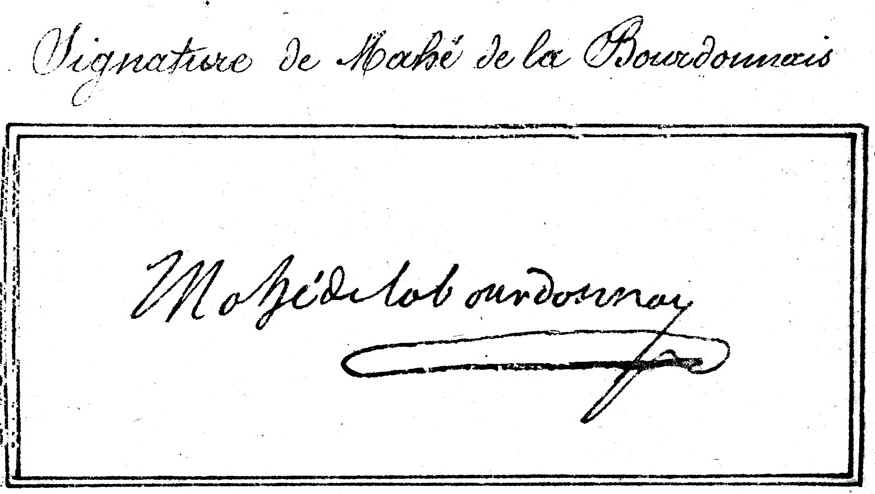 Signature de Mahé de la Bourdonnais
Mahé de labourdonnay